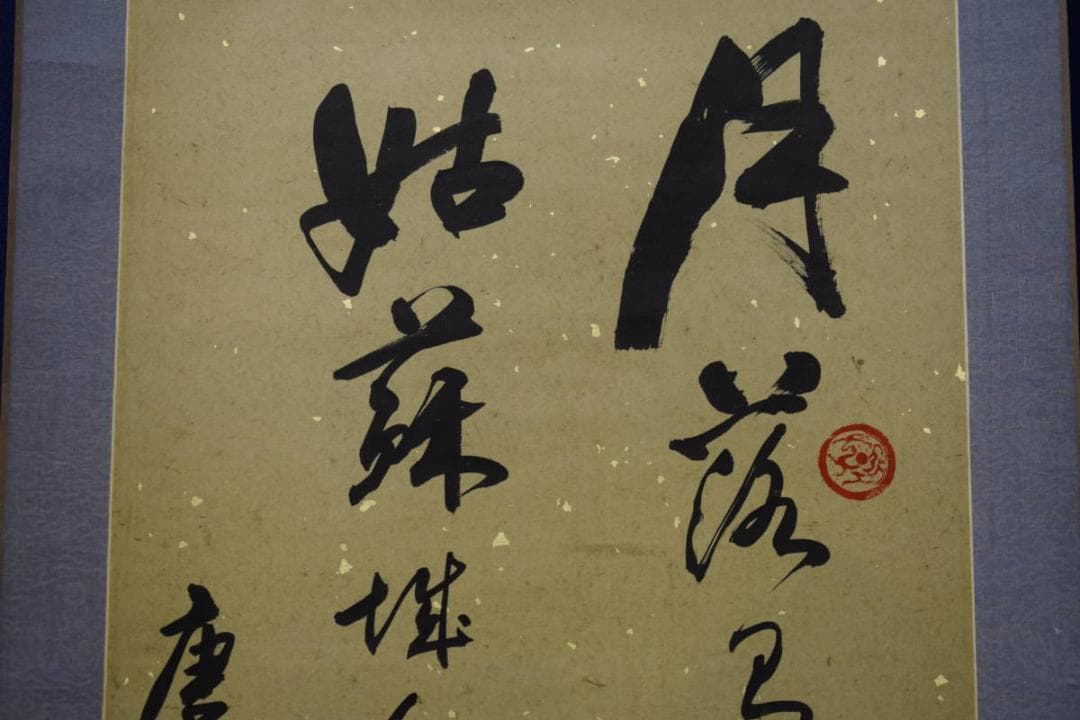 月落
姑蘇城
唐